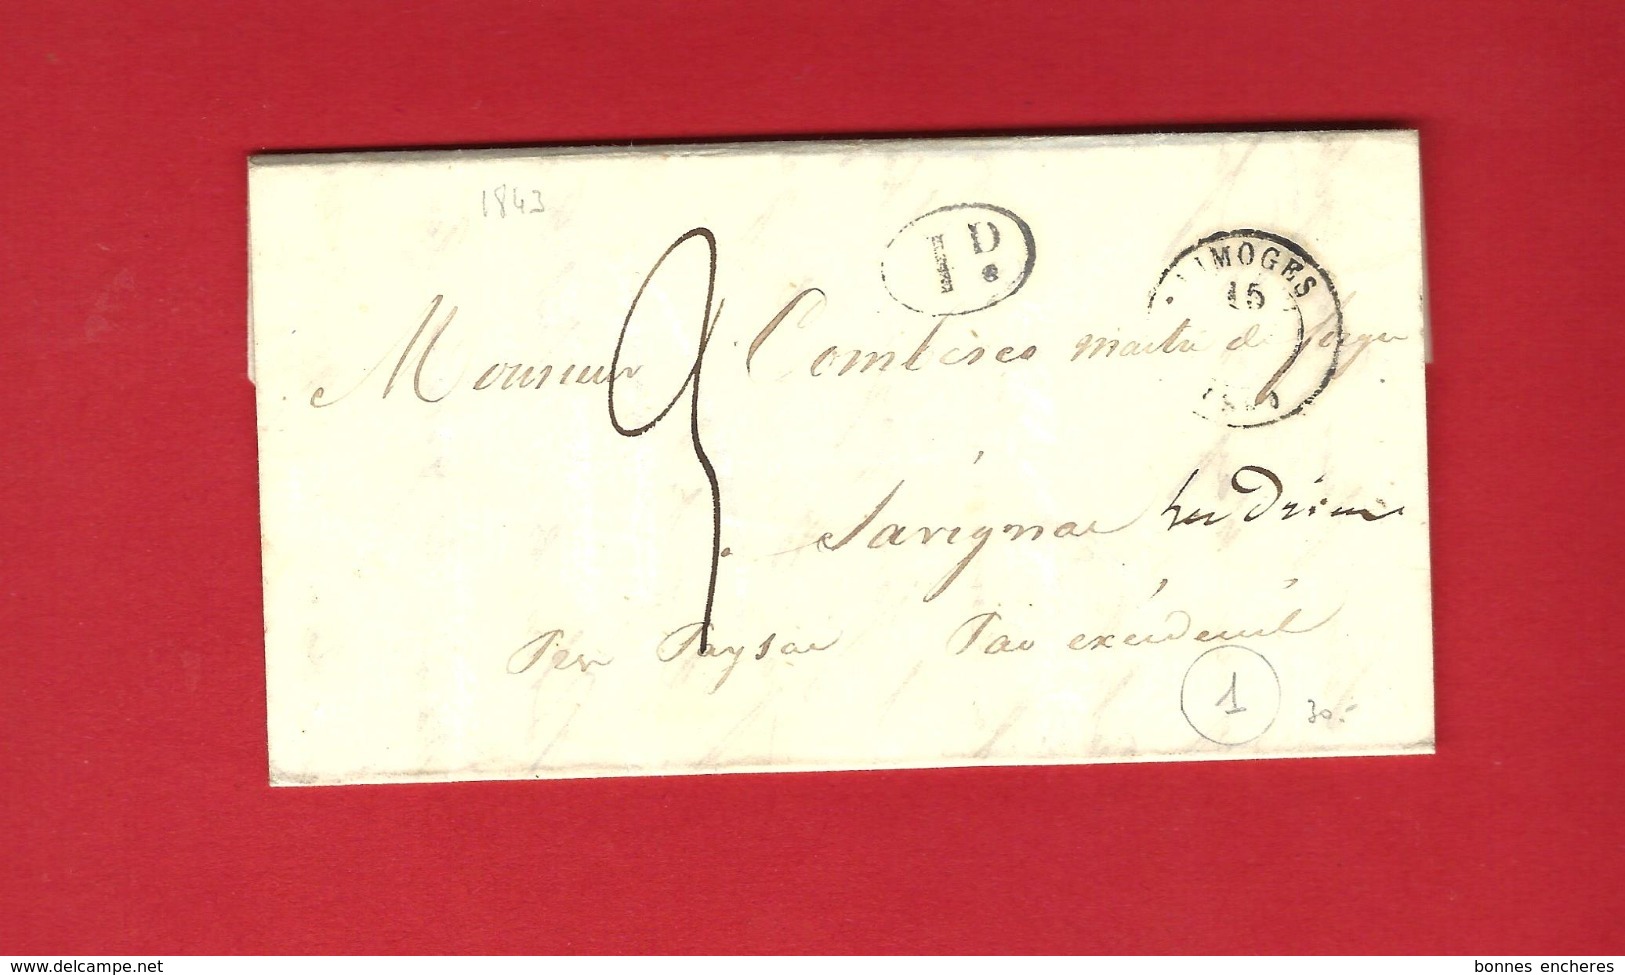 1843
1D.
LIMOGES
15
3
Monsieur Combesco maitre de forges
Savignac Ledrier
Par Paysac Par excideuil
1
30.-
www.delcampe.net
bonnes encheres